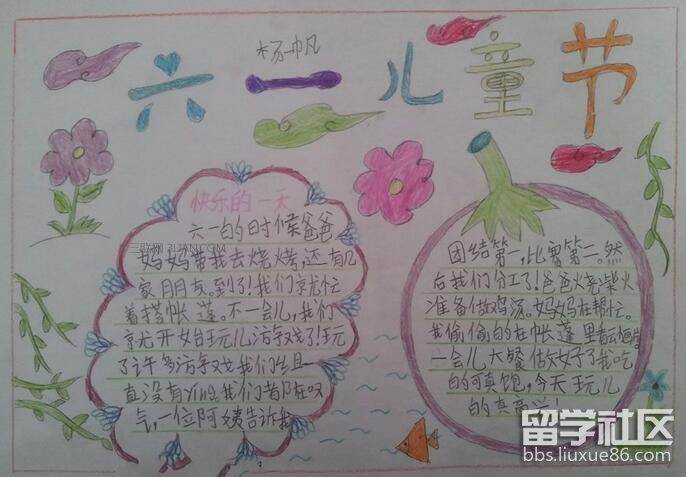 杨帆
六一儿童节
快乐的一天
六一的时候爸爸
妈妈带我去烧烤,还有几
家朋友。到了!我们就忙
着搭帐蓬。不一会儿,我们
就开始玩儿游戏了!玩
了许多游戏我们组一
直没有yíng我们都在叹
气,一位阿姨告诉我
团结第一,比赛第二。然
后我们分工了!爸爸烧柴火
准备做鸡汤。妈妈在帮忙。
我偷偷的在帐蓬里看
一会儿大餐做好了我吃
的可真饱,今天玩儿
的真高兴!
三联网 3LIAN.COM
留学社区
bbs.liuxue86.com